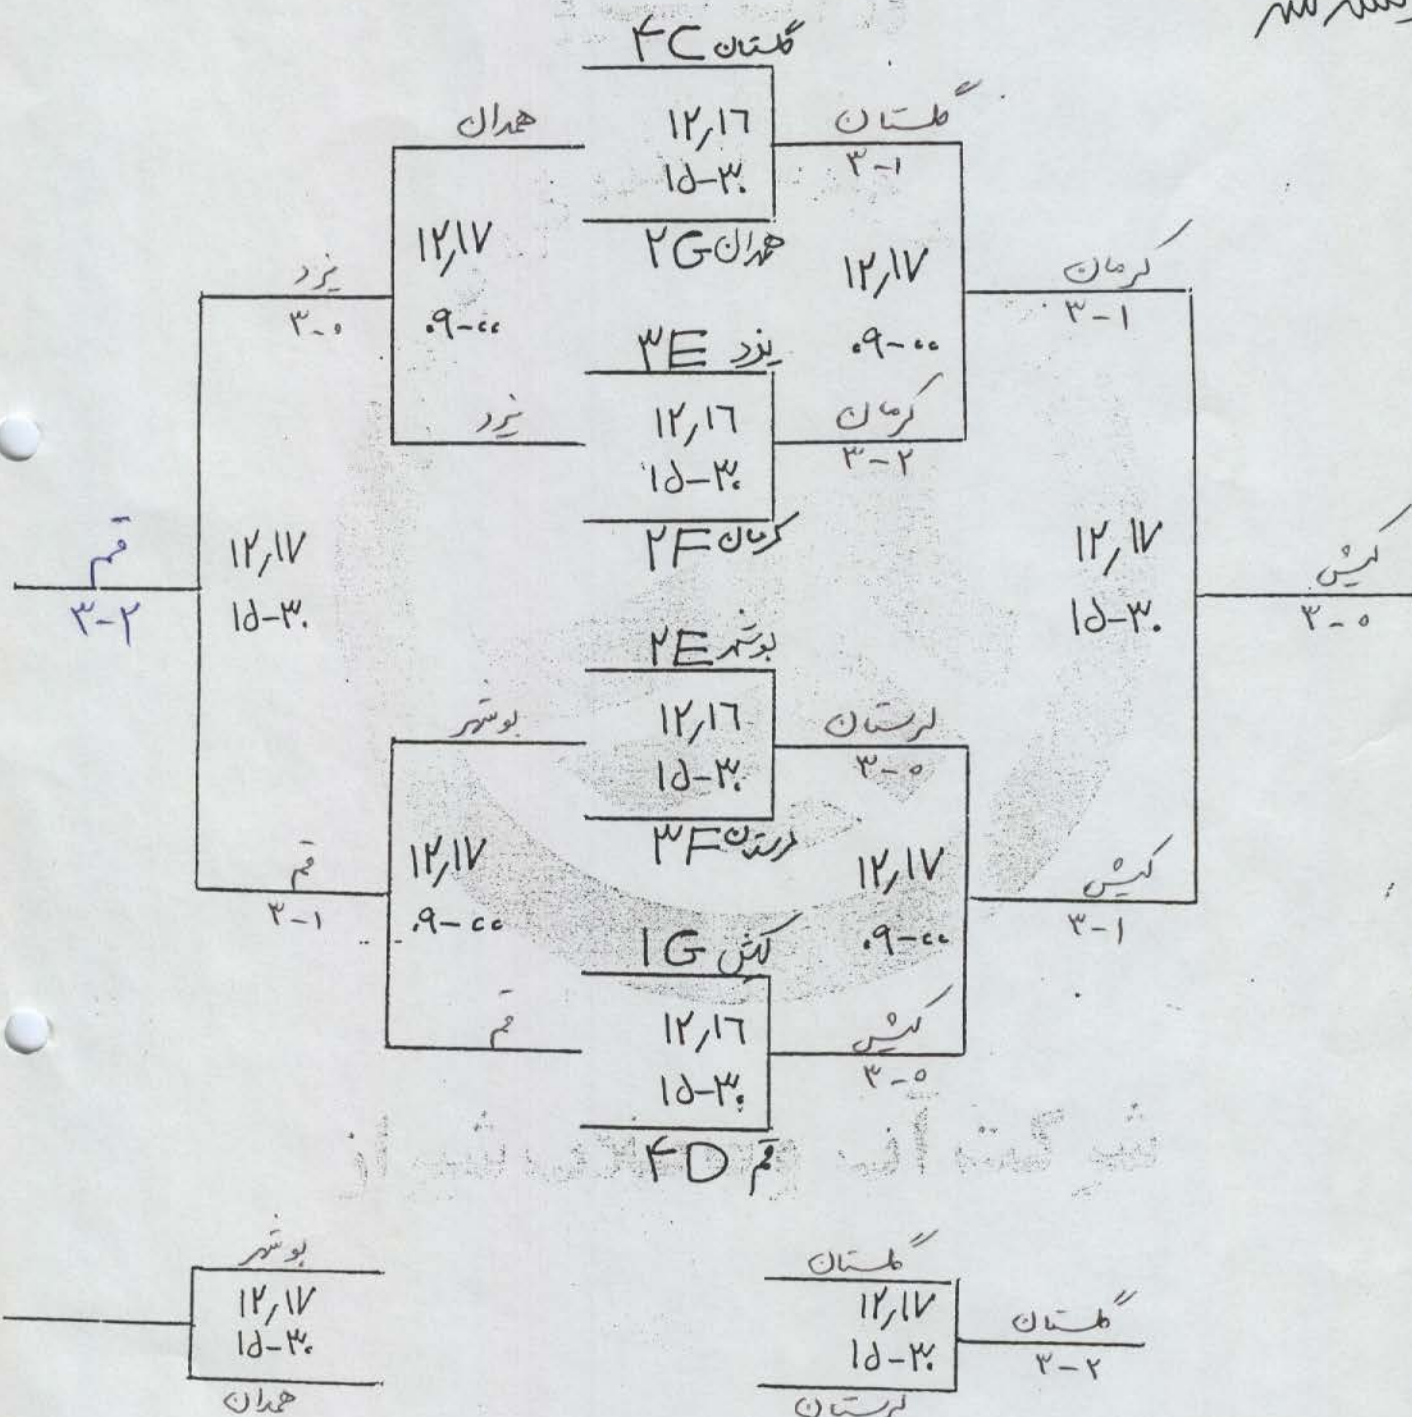 گلستان ۴C
همدان
۱۲,۱۶
۱۵-۳۰
گلستان
۳-۱
همدان ۲G
۱۲,۱۷
۰۹-۰۰
۱۲,۱۷
۰۹-۰۰
یزد
۳-۰
کرمان
۳-۱
یزد ۳E
یزد
۱۲,۱۶
۱۵-۳۰
کرمان
۳-۲
کرمان ۲F
قم
۳-۲
۱۲,۱۷
۱۵-۳۰
۱۲,۱۷
۱۵-۳۰
کیش
۳-۰
بوشهر ۲E
بوشهر
۱۲,۱۶
۱۵-۳۰
لرستان
۳-۰
لرستان ۳F
۱۲,۱۷
۰۹-۰۰
۱۲,۱۷
۰۹-۰۰
قم
۳-۱
کیش
۳-۱
کیش ۱G
قم
۱۲,۱۶
۱۵-۳۰
کیش
۳-۰
قم ۴D
بوشهر
۱۲,۱۷
۱۵-۳۰
همدان
گلستان
۱۲,۱۷
۱۵-۳۰
لرستان
گلستان
۳-۲